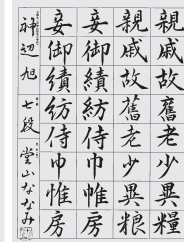 親戚故舊老少異糧
親戚故舊老少異粮
妾御績紡侍巾帷房
妾御績紡侍巾帷房
神辺 旭 七段 堂山ななみ